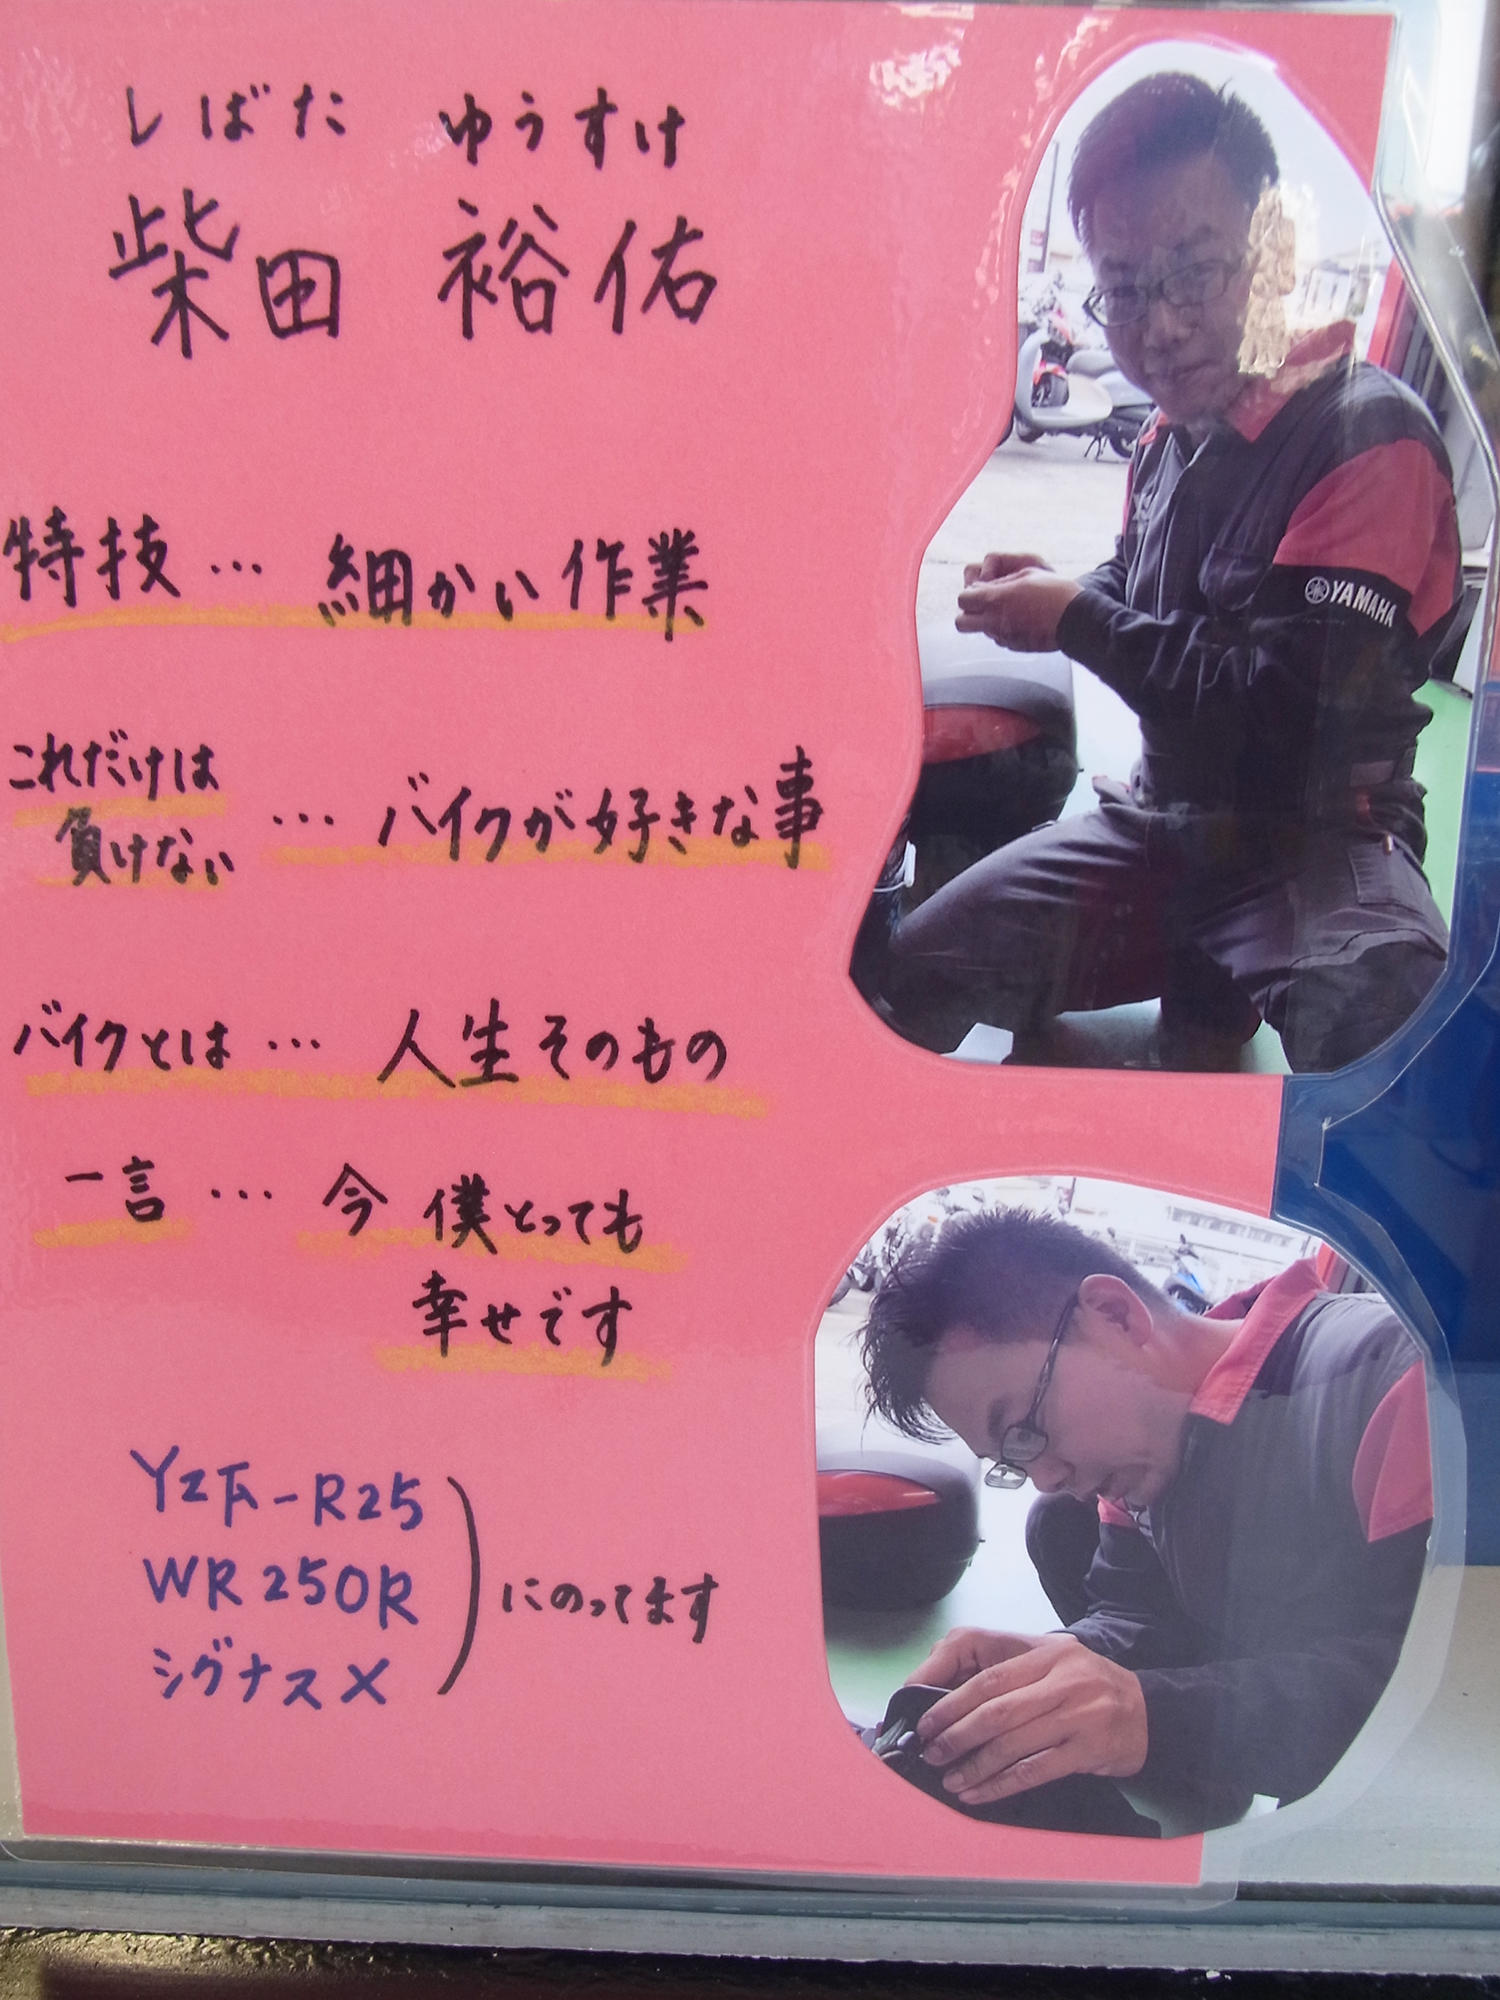 しばた ゆうすけ
柴田 裕佑
特技… 細かい作業
これだけは
負けない … バイクが好きな事
バイクとは… 人生そのもの
一言… 今 僕とっても
幸せです
YZF-R25
WR250R
シグナスX
にのってます
YAMAHA